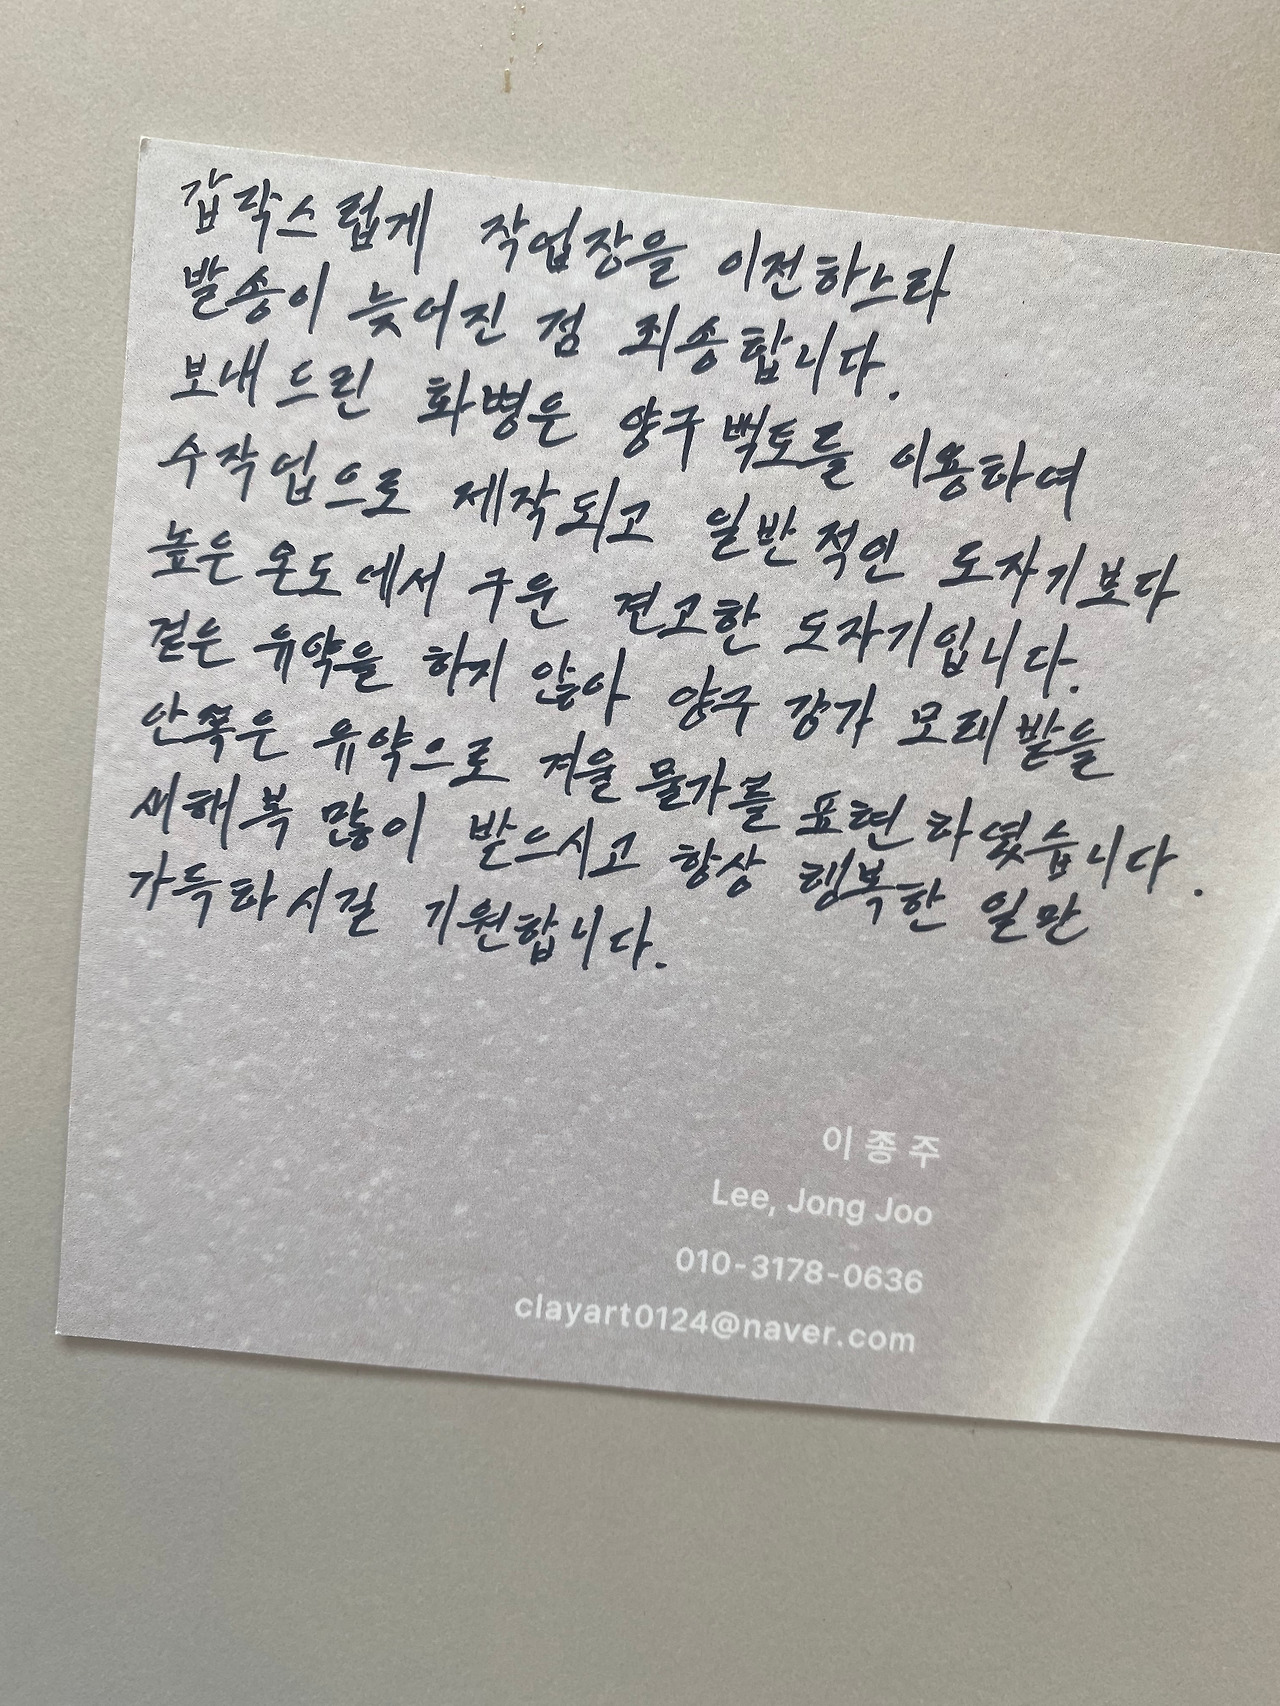 갑작스럽게 작업장을 이전하느라
발송이 늦어진 점 죄송합니다.
보내드린 화병은 양구백토를 이용하여
수작업으로 제작되고 일반적인 도자기보다
높은 온도에서 구운 견고한 도자기입니다.
겉은 유약을 하지 않아 양구 강가 모래밭을
안쪽은 유약으로 겨울 물가를 표현하였습니다.
새해 복 많이 받으시고 항상 행복한 일만
가득하시길 기원합니다.
이종주
Lee, Jong Joo
010-3178-0636
clayart0124@naver.com